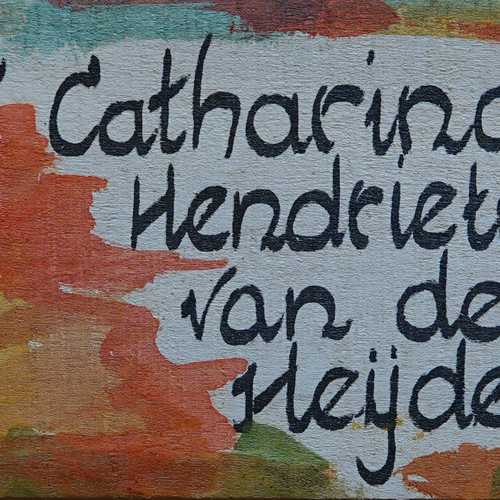 Catharina
Hendriet
van de
Heijde